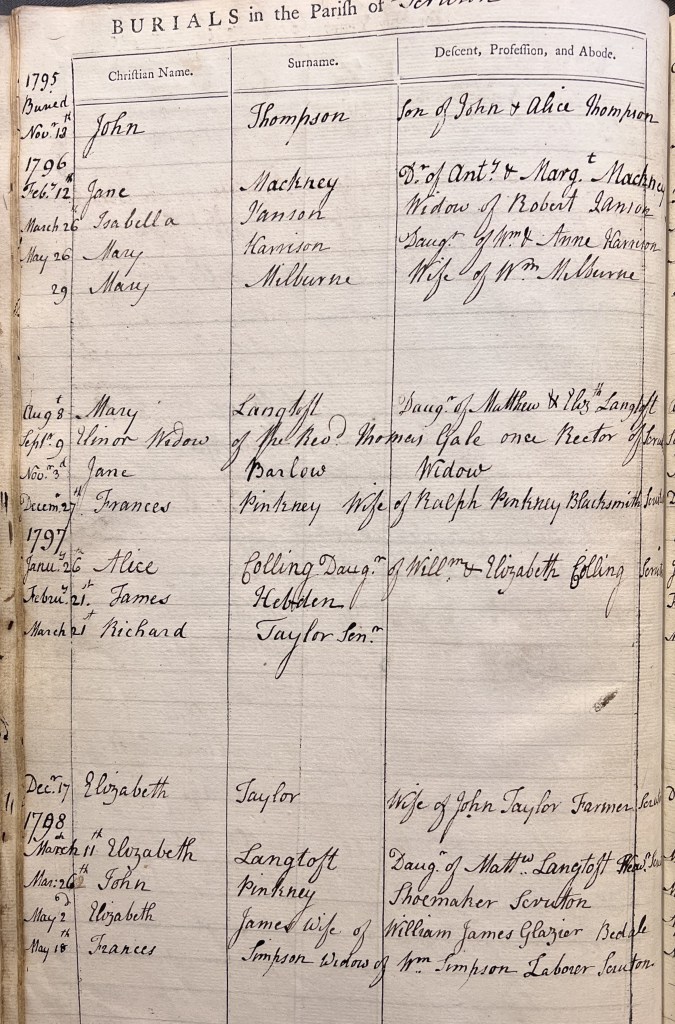 BURIALS in the Parish of Scruton
Christian Name. Surname. Descent, Profession, and Abode.
1795
Buried
Novr. 13th John Thompson Son of John & Alice Thompson
1796
Feb.y 12th Jane Mackney Dr. of Anty. & Margt. Mackney
March 26th Isabella I'anson Widow of Robert Ianson
May 26 Mary Harrison Daugr. of Wm. & Anne Harrison
29 Mary Milburne Wife of Wm Milburne
Augt 8 Mary Langtoft Daugr. of Matthew & Elizth Langtoft
Septr. 9 Elinor Widow of the Revd. Thomas Gale once Rector of
Novr. 3d Jane Barlow Widow
Decemr. 27th Frances Pinkney Wife of Ralph Pinkney Blacksmith
1797
Janu.y 26th Alice Colling Daugr. of Willm. & Elizabeth Colling
Febru.y 21st. James Hebden
March 21st Richard Taylor Senr.
Decr. 17 Elizabeth Taylor Wife of John Taylor Farmer
1798
March 11th Elizabeth Langtoft Daugr. of Mattw. Langtoft
Mar: 26th John Pinkney Shoemaker Scruton
May 2d Elizabeth James Wife of William James Glazier Bedale
May 18th Frances Simpson Widow of Wm Simpson Laborer Scruton